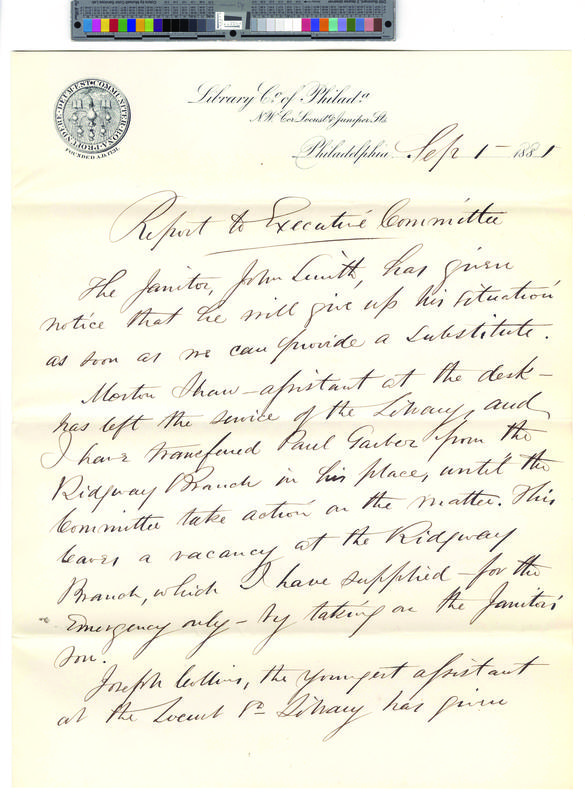 Library Co. of Philada.
N.W. Cor. Locust & Juniper Sts.
Philadelphia Sep 1 - 1881
Report to Executive Committee
The Janitor, John Smith, has given
notice that he will give up his situation
as soon as we can provide a substitute.
Morton Shaw - assistant at the desk -
has left the service of the Library, and
I have transferred Paul Garber from the
Ridgway Branch in his place, until the
Committee take action on the matter. This
leaves a vacancy at the Ridgway
Branch, which I have supplied - for the
Emergency only - by taking on the Janitor's
son.
Joseph Collins, the youngest assistant
at the Locust St Library has given